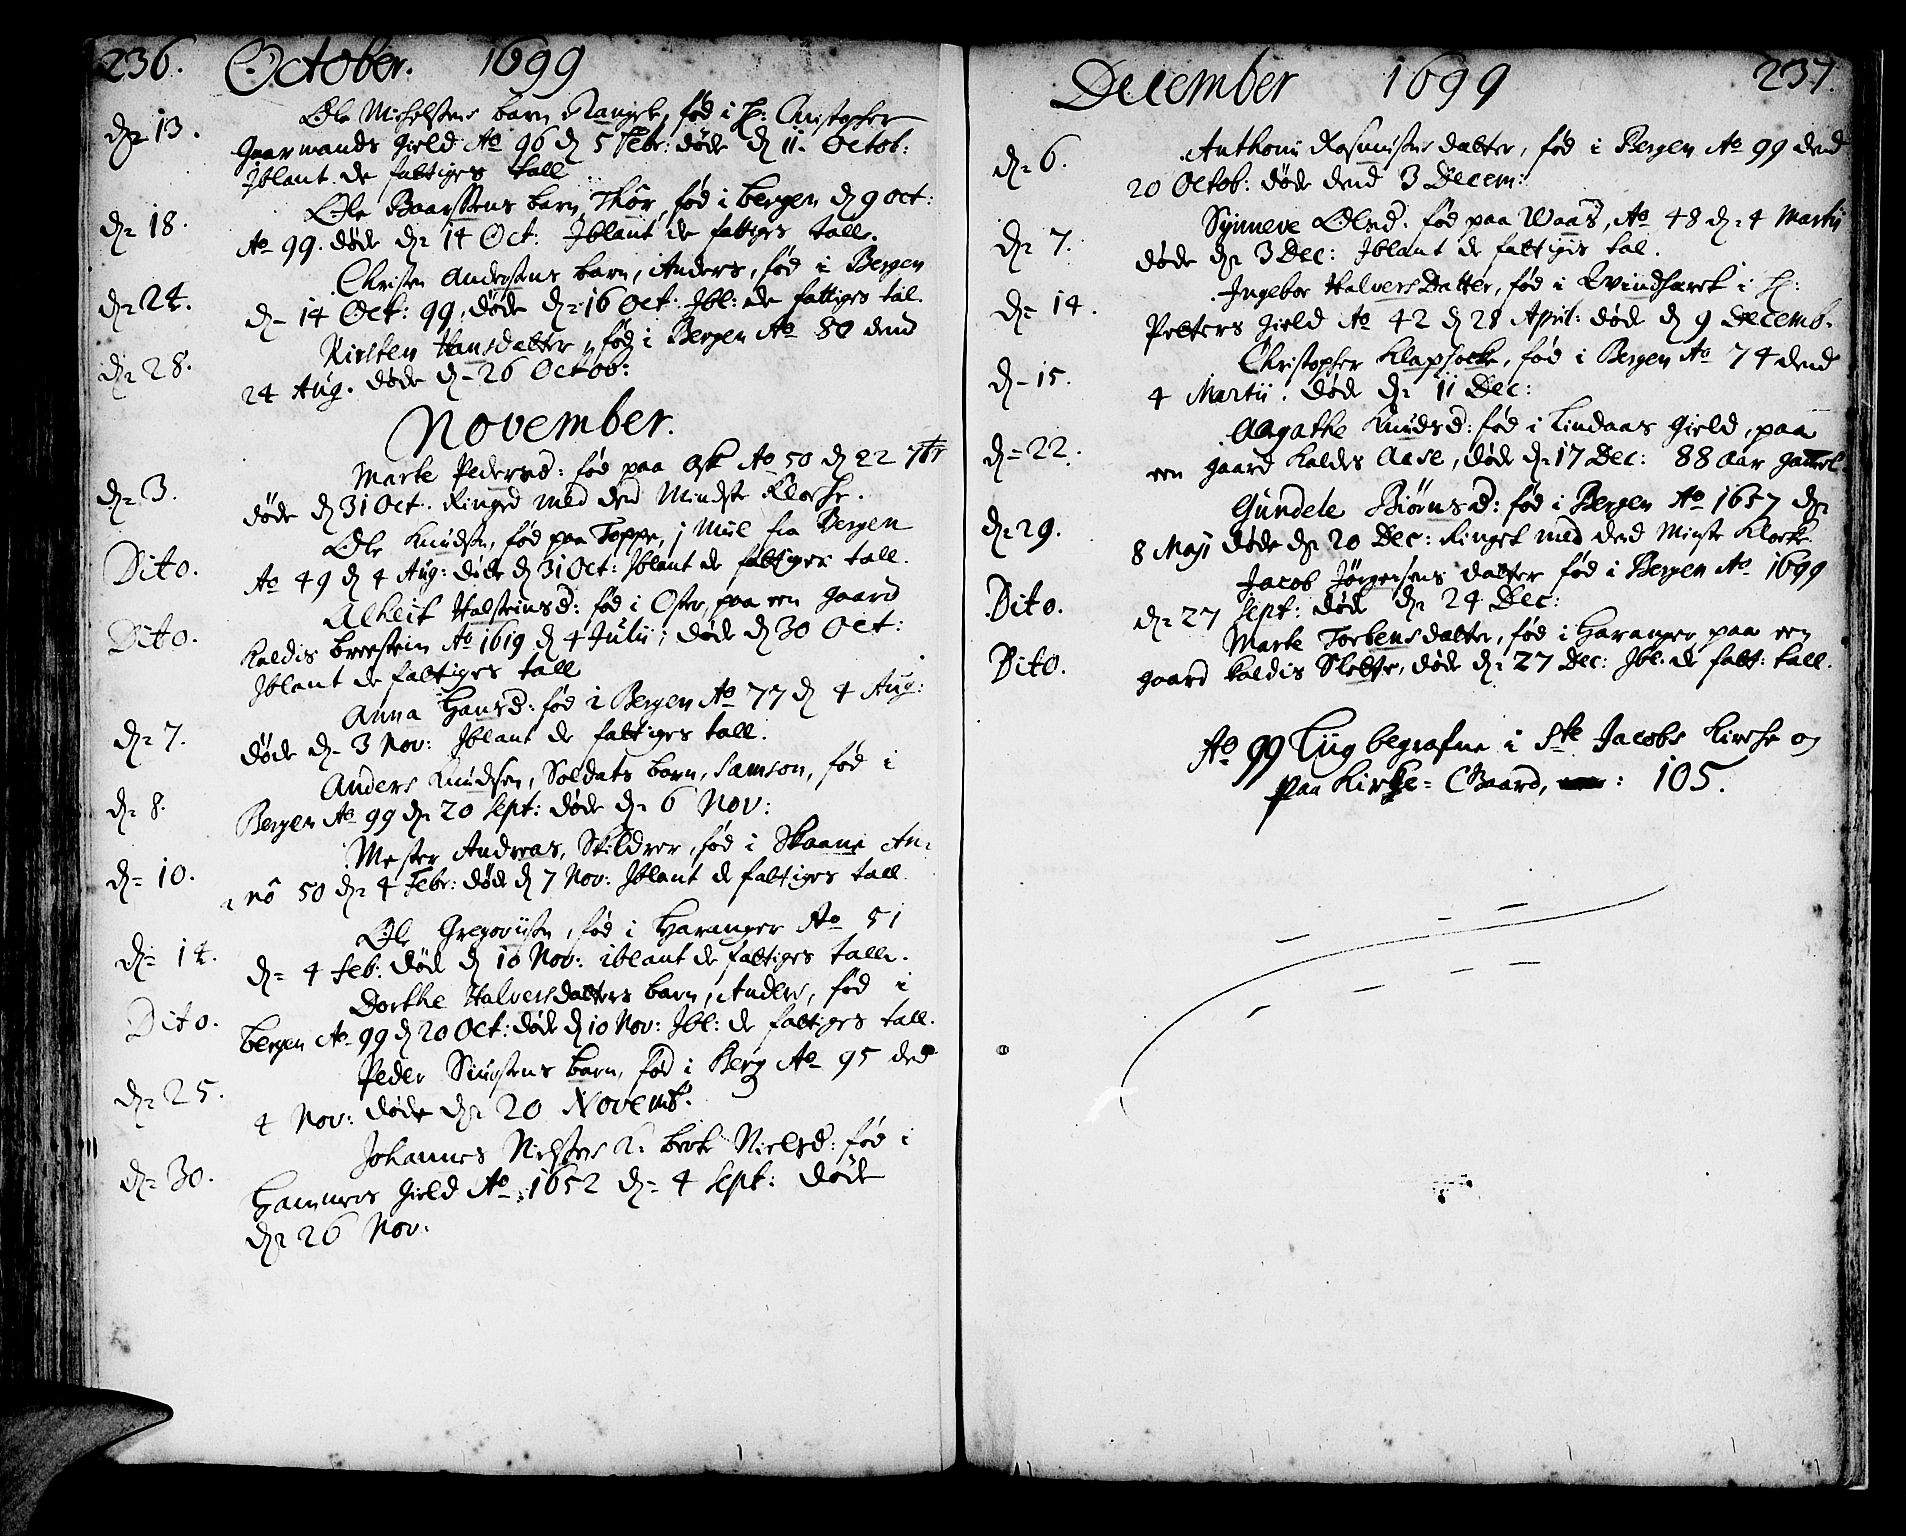 236. October. 1699
dn 13. Ole Michelsens barn fød i H: Christopher
Gaarmands gield Ao 96 d 5 Febr: døde d 11. Octob:
Iblant de fattiges tall
dn 18. Ole Baarssens barn, Thôr, fød i bergen d 9 oct:
Ao 99. døde dn 14 Oct: Iblant de fattiges talle.
dn 24. Christen Andersens barn, Anders, fød i Bergen
dn 14 Oct: 99, døde dn 16 Oct: Ibl: de fattiges tal.
dn 28. Kirsten Hansdatter, fød i Bergen Ao 80 dend
24 Aug. døde dn 26 Octob:
November.
dn 3. Marte Pedersd: fød paa Ask Ao 50 d 22 7br
døde d 31 Oct. Ringed med dend Mindste Klocke.
Dito. Ole Knudsen, fød paa Toppe, j Miil fra Bergen
Ao 49 d 4 Aug: døde d 31 Oct: Iblant de fattiges tall.
Dito. Alheit Halsteinsd: fød i Oster, paa een gaard
kaldis breestein Ao 1619 d 4 Julii; døde d 30 Oct:
Iblant de fattiges tall
dn 7. Anna Hansd: fød i Bergen Ao 77 d 4 Aug:
døde dn 3 Nov: Iblant de fattiges tall.
dn 8. Anders Knudsen, Soldats barn, Samson, fød i
Bergen Ao 99 dn 20 Sept: døde dn 6 Nov:
dn 10. Mester Andreas, Skildrer, fød i Skaane An-
nô 50 dn 4 Febr: død d 7 Nov: Iblant de fattiges tall
dn 14. Ole Gregoriisen, fød i Haranger Ao 51
dn 4 Feb: død d 10 Nov: iblant de fattiges talle.
Dito. Dorthe Halversdatters barn, Anders, fød i
bergen Ao 99 d 20 Oct: døde d 10 Nov: Ibl: de fattiges tall.
dn 25. Peder barn, fød i Berg Ao 95 ded
4 Nov: døde dn 20 Novemb:
dn 30. Johannes Nielsd: fød i
Hammers gield Ao 1652 dn 4 Sept: døde
dn 26 Nov:
December 1699 237.
dn 6. Anthoni Rasmusens datter, fød i Bergen Ao 99 dend
20 Octob: døde dend 3 Decem:
dn 7. Synneve Olsd: fød paa Waas, Ao 48 dn 4 Martii
døde dn 3 Dec: Iblant de fattigis tal.
dn 14. Ingebor Halversdatter, fød i Qvindherret i H:
Petters gield Ao 42 d 28 April: døde d 9 Decemb:
dn 15. Christopher Klapsocke, fød i Bergen Ao 74 dend
4 Martii. døde dn 11 Dec:
dn 22. Aagathe Knudsd: fød i Lindaas gield, paa
een gaard kaldes Aase, døde dn 17 Dec: 88 aar gammel
dn 29. Gundele Biørnsd: fød i Bergen Ao 1657 dn
8 Maji døde dn 20 Dec: Ringet med dend Minste Klocke
Dito. Jacob Jørgensens datter fød i Bergen Ao 1699
dn 27 Sept: døde dn 24 Dec:
Dito. Marte Torbensdatter, fød i Haranger paa een
gaard kaldis Slette, døde dn 27 Dec: Ibl: de fatt: tall.
Ao 99 Liig begrafne i Ste Jacobs Kirche og
paa Kirke-Gaard, : 105.